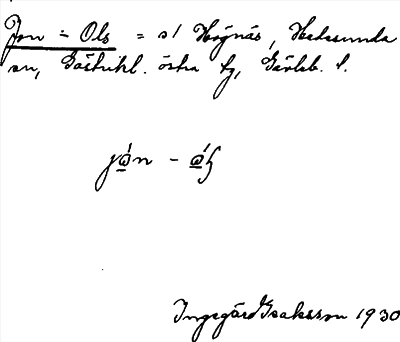 Jon = Ols = s/ Högnäs, Hedesunda
sn, Gästrikl. östra tg, Gävleb. l.
jo̲ń - o̲ĺs
Ingegärd Isaksson 1930